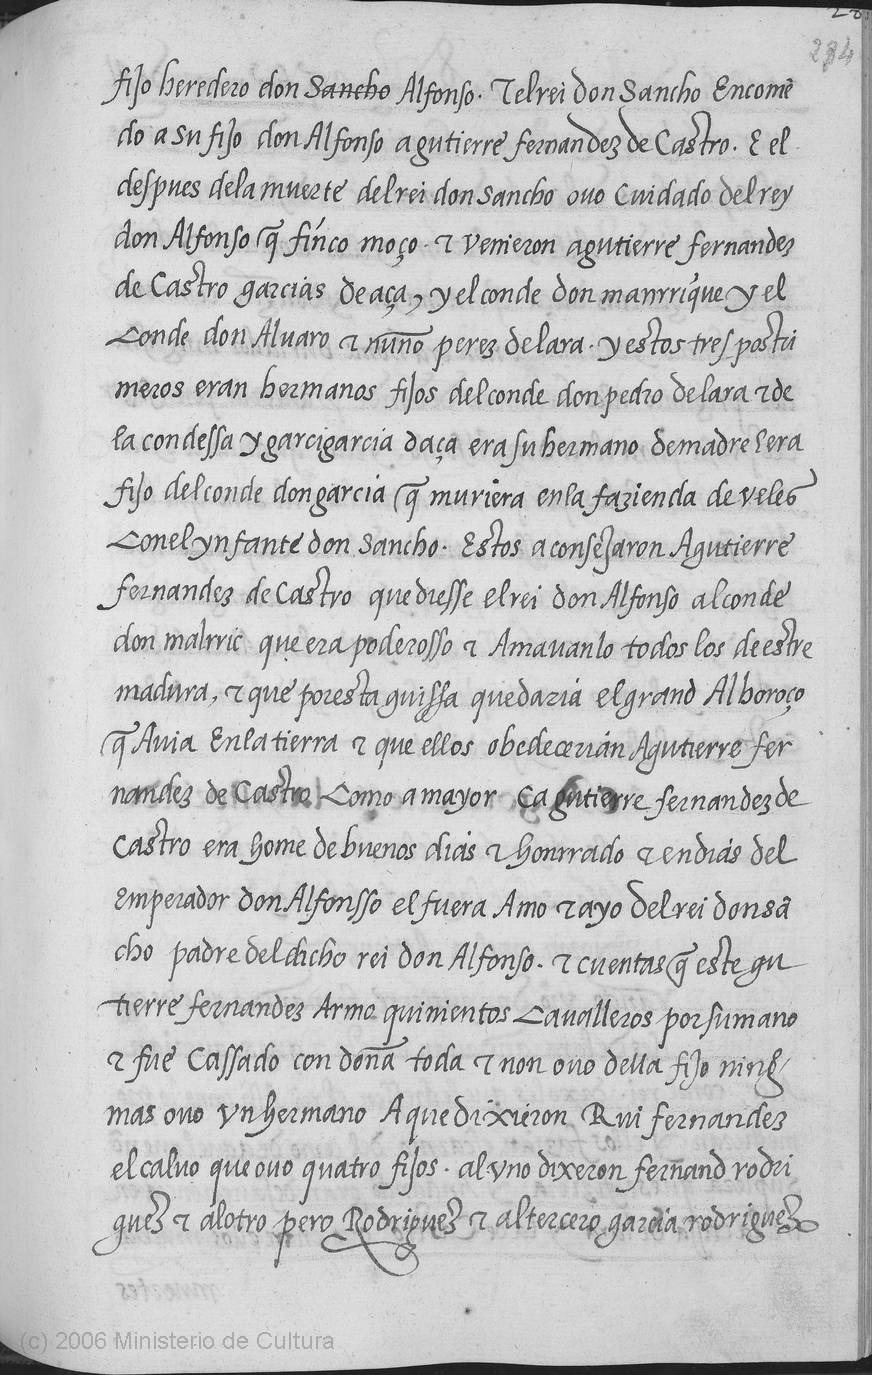 28
284
fijo heredero don Sancho Alfonso. τ el rei don Sancho Encomē
do a su fijo don Alfonso a gutierre fernandez de Castro. E el
despues dela muerte del rei don Sancho ovo Cuidado del rey
don Alfonso q̃ finco moço. τ venieron a gutierre fernandez
de Castro garcias de aça, y el conde don manrrique y el
Conde don Alvaro τ nuño perez de lara. y estos tres postri
meros eran hermanos fijos del conde don pedro de lara τ de
la condessa y garcigarcia daça era su hermano de madre E era
fijo del conde don garcia q̃ muriera en la fazienda de veles
Con el ynfante don Sancho. Estos aconsejaron A gutierre
fernandez de Castro que diesse el rei don Alfonso al conde
don malrric que era poderosso τ Amavanlo todos los de estre
madura, τ que por esta guissa quedaria el grand Alboroço
q̃ Avia En la tierra τ que ellos obedecerian A gutierre fer
nandez de Castro Como a mayor Ca gutierre fernandez de
Castro era home de buenos dias τ honrrado τ en dias del
Emperador don Alfonsso el fuera Amo τ ayo del rei don sã
cho padre del dicho rei don Alfonso. τ cuentas q̃ este gu
tierre fernandez Armo quinientos Cavalleros por su mano
τ fue Cassado con doña toda τ non ovo della fijo ning
mas ovo yn hermano A que dixieron Rui fernandez
el calvo que ovo quatro fijos. al vno dixeron fernand rodri
guez τ al otro pero Rodriguez τ al tercero garcia rodriguez
(c) 2006 Ministerio de Cultura